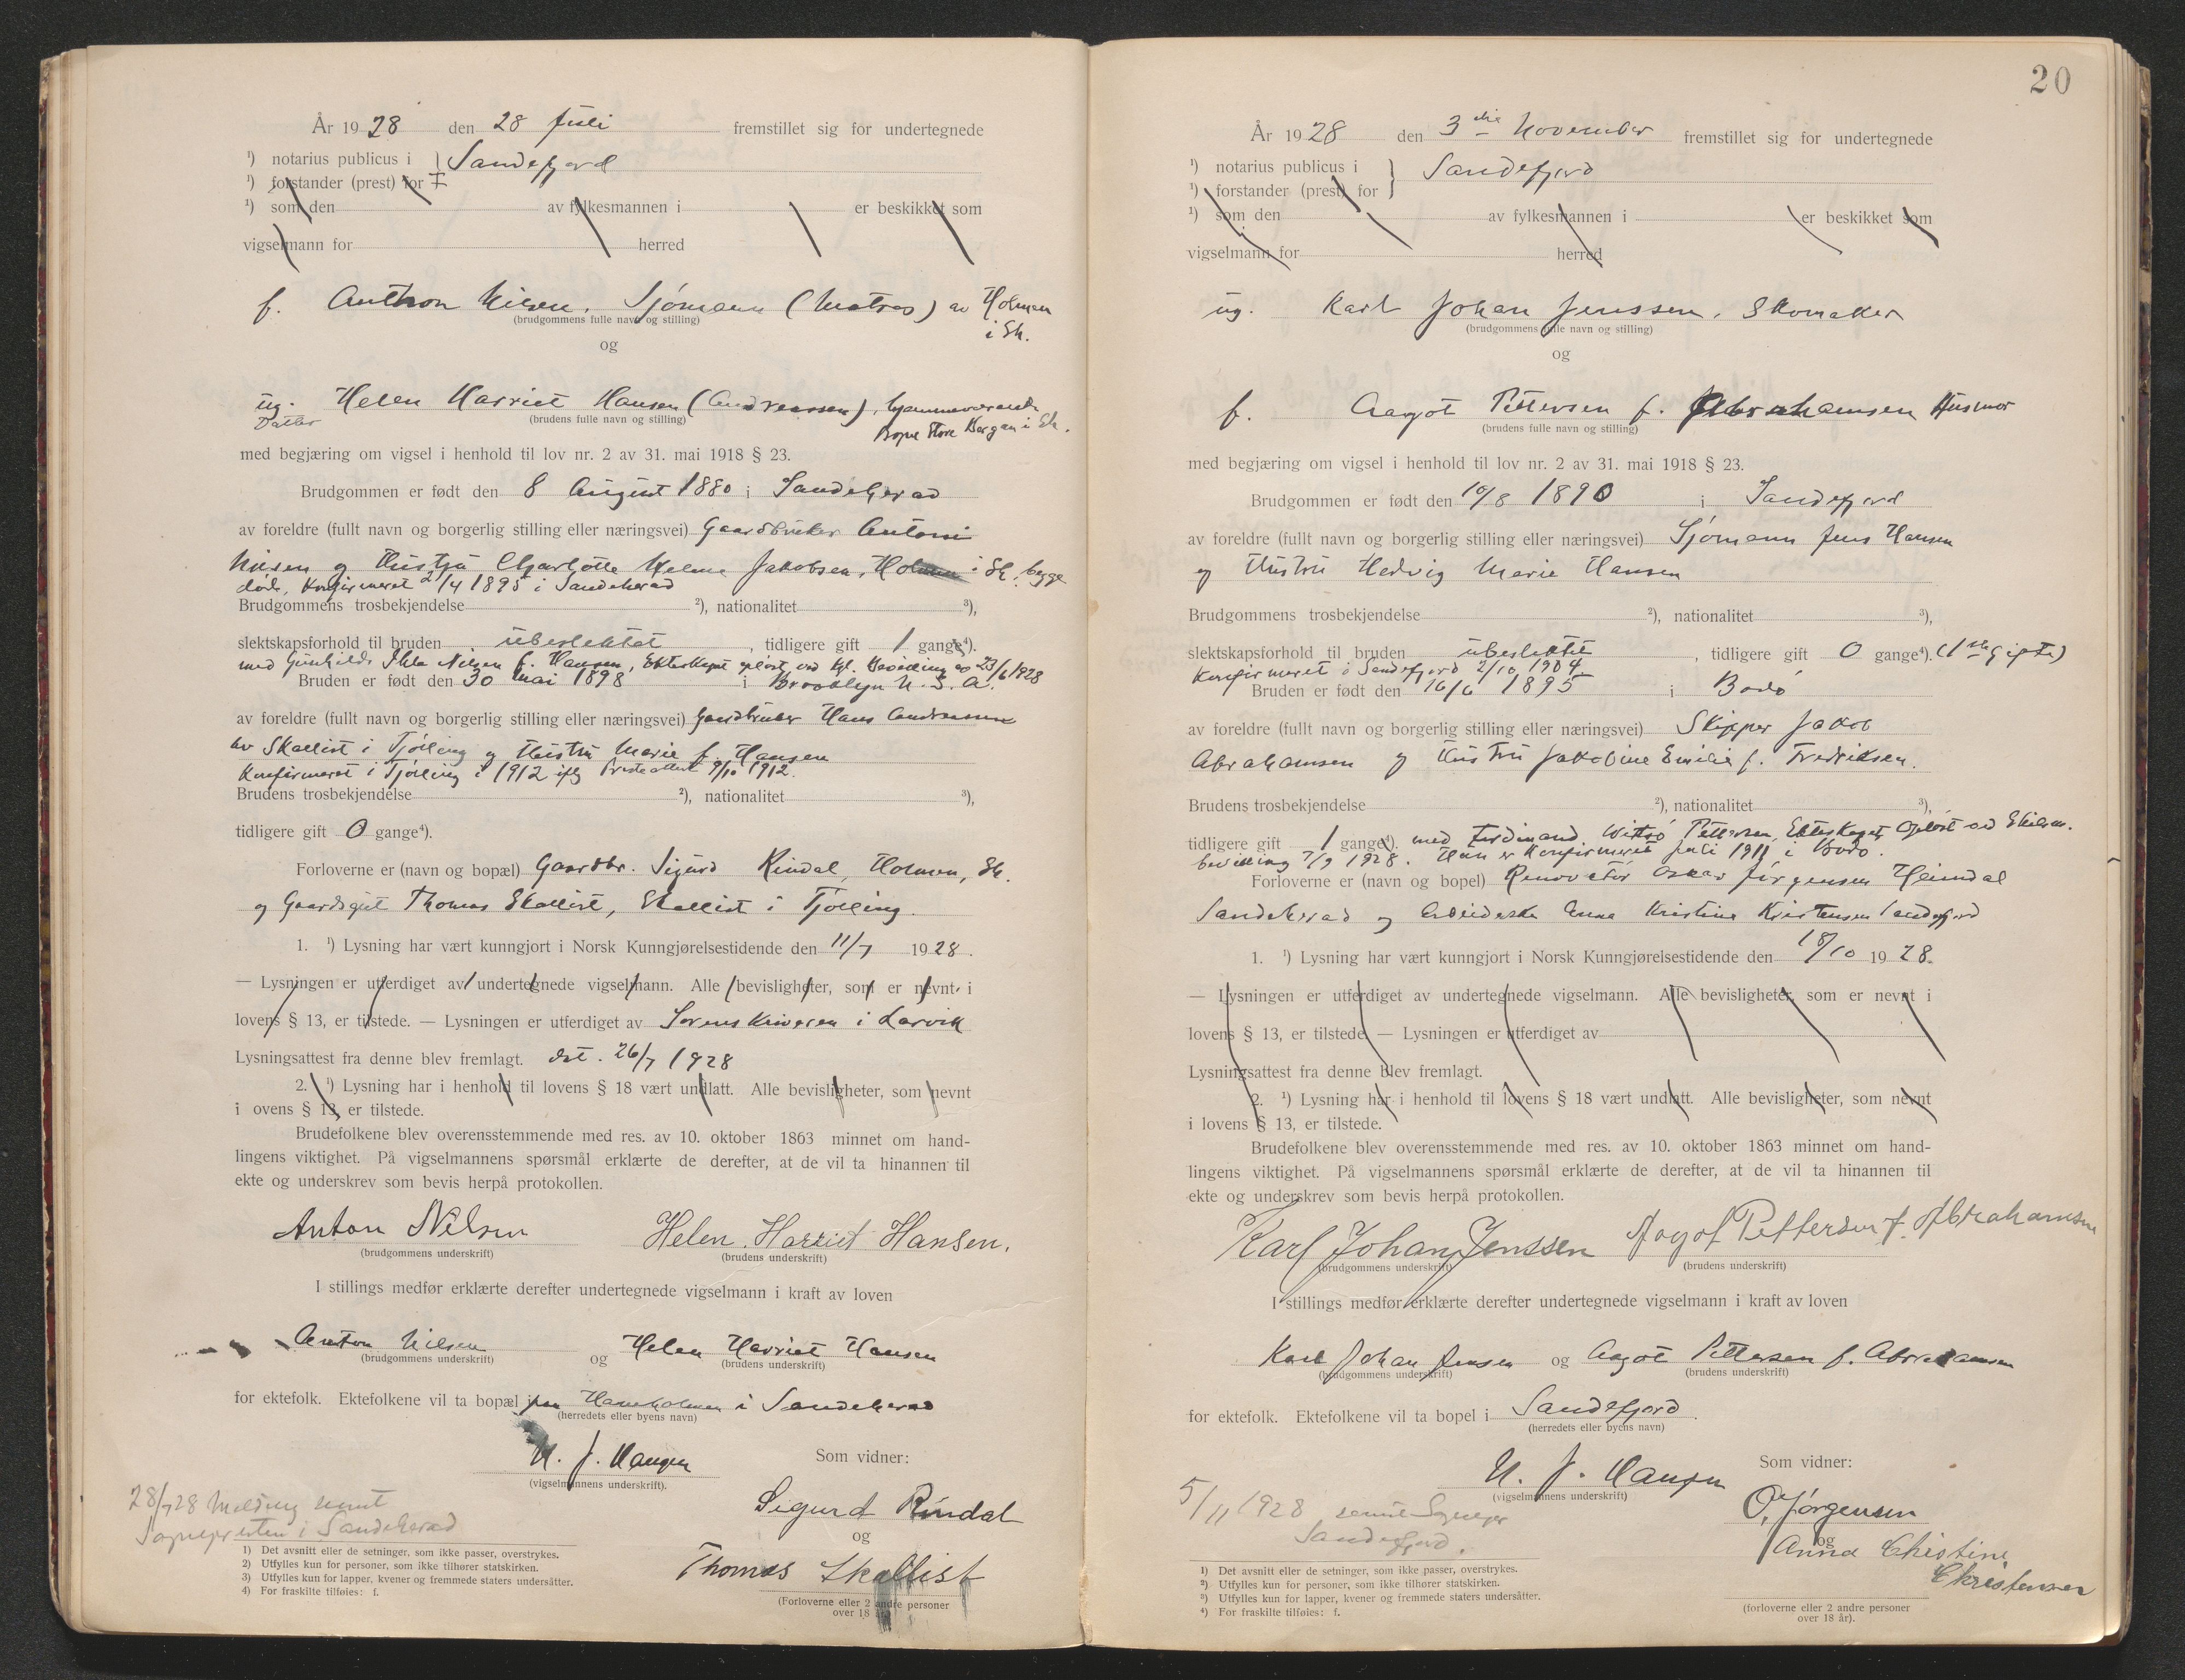 År 1928 den 28 Juli fremstillet sig for undertegnede
¹) notarius publicus i } Sandefjord
¹) forstander (prest) for
¹) som den av fylkesmannen i er beskikket som
vigselmann for herred
f. Anthon Nilsen, Sjömann (Matros) av Holmen
(brudgommens fulle navn og stilling)
i Sh.
og
ug. Helen Harriet Hansen (Andreassen), hjemmeværende
Datter
(brudens fulle navn og stilling)
Bopæl Store Bergan i Sh.
med begjæring om vigsel i henhold til lov nr. 2 av 31. mai 1918 § 23.
Brudgommen er født den 8 August 1880 i Sandeherad
av foreldre (fullt navn og borgerlig stilling eller næringsvei) Gaardbruker Antoni
Nilsen og Hustru Charlotte Helene Jakobsen, Holmen i Sh. begge
døde, Konfirmeret 21/4 1895 i Sandeherad
Brudgommens trosbekjendelse ²), nationalitet ³),
slektskapsforhold til bruden ubeslektet, tidligere gift 1 gange⁴).
med Gunhilda Thla Nilsen f. Hansen, Ekteskapet opløst ved Kgl. Bevilling av 23/6 1928
Bruden er født den 30 Mai 1898 i Brooklyn U.S.A.
av foreldre (fullt navn og borgerlig stilling eller næringsvei) Gaardbruker Hans Andreassen
av Skallist i Tjölling og Hustru Marie f. Hansen
Konfirmeret i Tjölling i 1912 iflg Presteattest 9/10 1912.
Brudens trosbekjendelse ²), nationalitet ³),
tidligere gift 0 gange⁴).
Forloverne er (navn og bopæl) Gaardbr. Sigurd Rindal, Holmen, Sh.
og Gaardsgut Thomas Skallist, Skallist i Tjölling.
1. ¹) Lysning har vært kunngjort i Norsk Kunngjørelsestidende den 11/7 1928.
— Lysningen er utferdiget av undertegnede vigselmann. Alle bevisligheter, som er nevnt i
lovens § 13, er tilstede. — Lysningen er utferdiget av Sorenskriveren i Larvik
Lysningsattest fra denne blev fremlagt. dat. 26/7 1928
2. ¹) Lysning har i henhold til lovens § 18 vært undlatt. Alle bevisligheter, som nevnt
i ovens § 13, er tilstede.
Brudefolkene blev overensstemmende med res. av 10. oktober 1863 minnet om hand-
lingens viktighet. På vigselmannens spørsmål erklærte de derefter, at de vil ta hinannen til
ekte og underskrev som bevis herpå protokollen.
Anton Nilsen Helen Harriet Hansen.
(brudgommens underskrift) (brudens underskrift)
I stillings medfør erklærte derefter undertegnede vigselmann i kraft av loven
Anton Nilsen og Helen Harriet Hansen
(brudgommens underskrift) (brudens underskrift)
for ektefolk. Ektefolkene vil ta bopæl i paa Haneholmen i Sandeherad
(herredets eller byens navn)
N. J. Haugen Som vidner:
(vigselmannens underskrift).
28/7 28 Melding sendt
Sognepresten i Sandeherad
Sigurd Rindal
og
Thomas Skallist
(Forloverne eller 2 andre personer
over 18 år)
1) Det avsnitt eller de setninger, som ikke passer, overstrykes.
2) Utfylles kun for personer, som ikke tilhører statskirken.
3) Utfylles kun for lapper, kvener og fremmede staters undersåtter.
4) For fraskilte tilføies: f.
20
År 1928 den 3die November fremstillet sig for undertegnede
¹) notarius publicus i } Sandefjord
¹) forstander (prest) for
¹) som den av fylkesmannen i er beskikket som
vigselmann for herred
ug. Karl Johan Jenssen, Skomaker
(brudgommens fulle navn og stilling)
og
f. Aagot Pettersen f. Abrahamsen Husmor
(brudens fulle navn og stilling)
med begjæring om vigsel i henhold til lov nr. 2 av 31. mai 1918 § 23.
Brudgommen er født den 10/8 1890 i Sandefjord
av foreldre (fullt navn og borgerlig stilling eller næringsvei) Sjømann Jens Hansen
og Hustru Hedvig Marie Hansen
Brudgommens trosbekjendelse ²), nationalitet ³),
slektskapsforhold til bruden ubeslektet, tidligere gift 0 gange⁴).
Konfirmeret i Sandefjord 2/10 1904
Bruden er født den 16/6 1895 i Bodö
av foreldre (fullt navn og borgerlig stilling eller næringsvei) Skipper Jakob
Abrahamsen og Hustru Jakobine Emilie f. Fredriksen.
Brudens trosbekjendelse ²), nationalitet ³),
tidligere gift 1 gange⁴). med Ferdinand Pettersen, Ekteskapet opløst ved Skilsm.
bevilling 7/9 1928. Hun er Konfirmeret Juli 1911 i Bodö.
Forloverne er (navn og bopel) Renovatör Oskar Jörgensen Heimdal
Sandeherad og Arbeiderske Anna Kristine Kristensen Sandefjord
1. ¹) Lysning har vært kunngjort i Norsk Kunngjørelsestidende den 18/10 1928.
— Lysningen er utferdiget av undertegnede vigselmann. Alle bevisligheter, som er nevnt i
lovens § 13, er tilstede — Lysningen er utferdiget av
Lysningsattest fra denne blev fremlagt.
2. ¹) Lysning har i henhold til lovens § 18 vært undlatt. Alle bevisligheter, som nevnt
i lovens § 13, er tilstede.
Brudefolkene blev overensstemmende med res. av 10. oktober 1863 minnet om hand-
lingens viktighet. På vigselmannens spørsmål erklærte de derefter, at de vil ta hinannen til
ekte og underskrev som bevis herpå protokollen.
Karl Johan Jenssen Aagot Pettersen f. Abrahamsen
(brudgommens underskrift) (brudens underskrift)
I stillings medfør erklærte derefter undertegnede vigselmann i kraft av loven
Karl Johan Jensen og Aagot Pettersen f. Abrahamsen
(brudgommens underskrift) (brudens underskrift)
for ektefolk. Ektefolkene vil ta bopel i Sandefjord.
(herredets eller byens navn)
N. J. Haugen Som vidner:
(vigselmannens underskrift)
5/11 1928 sendt Sognepr
Sandefjord.
O. Jørgensen
og
Anna Christine
Christensen
(forloverne eller 2 andre personer
over 18 år).
1) Det avsnitt eller de setninger, som ikke passer, overstrykes.
²) Utfylles kun for personer, som ikke tilhører statskirken.
³) Utfylles kun for lapper, kvener og fremmede staters undersåtter.
⁴) For fraskilte tilføies: f.